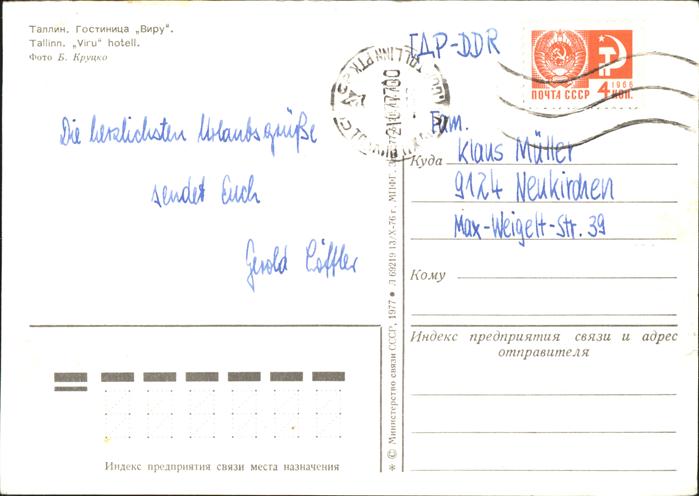 Таллин. Гостиница „Виру".
Tallinn. „Viru" hotell.
Фото Б. Круцко
ГДР-DDR
ПОЧТА СССР
1966
4 КОП.
Die herzlichsten Urlaubsgrüße
sendet Euch
Gerold Löffler
Fam.
Куда Klaus Müller
9124 Neukirchen
Max-Weigelt-Str. 39
Кому
Индекс предприятия связи и адрес
отправителя
Индекс предприятия связи места назначения
* © Министерство связи СССР, 1977 * Л 69219 13/X-76 г., МПФГ,